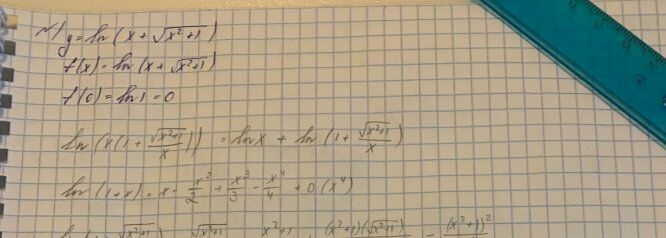 №1 y = ln (x + √(x²+1))
f(x) = ln (x + √(x²+1))
f(0) = ln 1 = 0
ln (x(1 + √(x²+1)/x)) = ln x + ln (1 + √(x²+1)/x)
ln (1+x) = x - x²/2 + x³/3 - x⁴/4 + o(x⁴)
√(x²+1) √(x²+1) x²+1 (x²+1)(√(x²+1)) - (x²+1)²